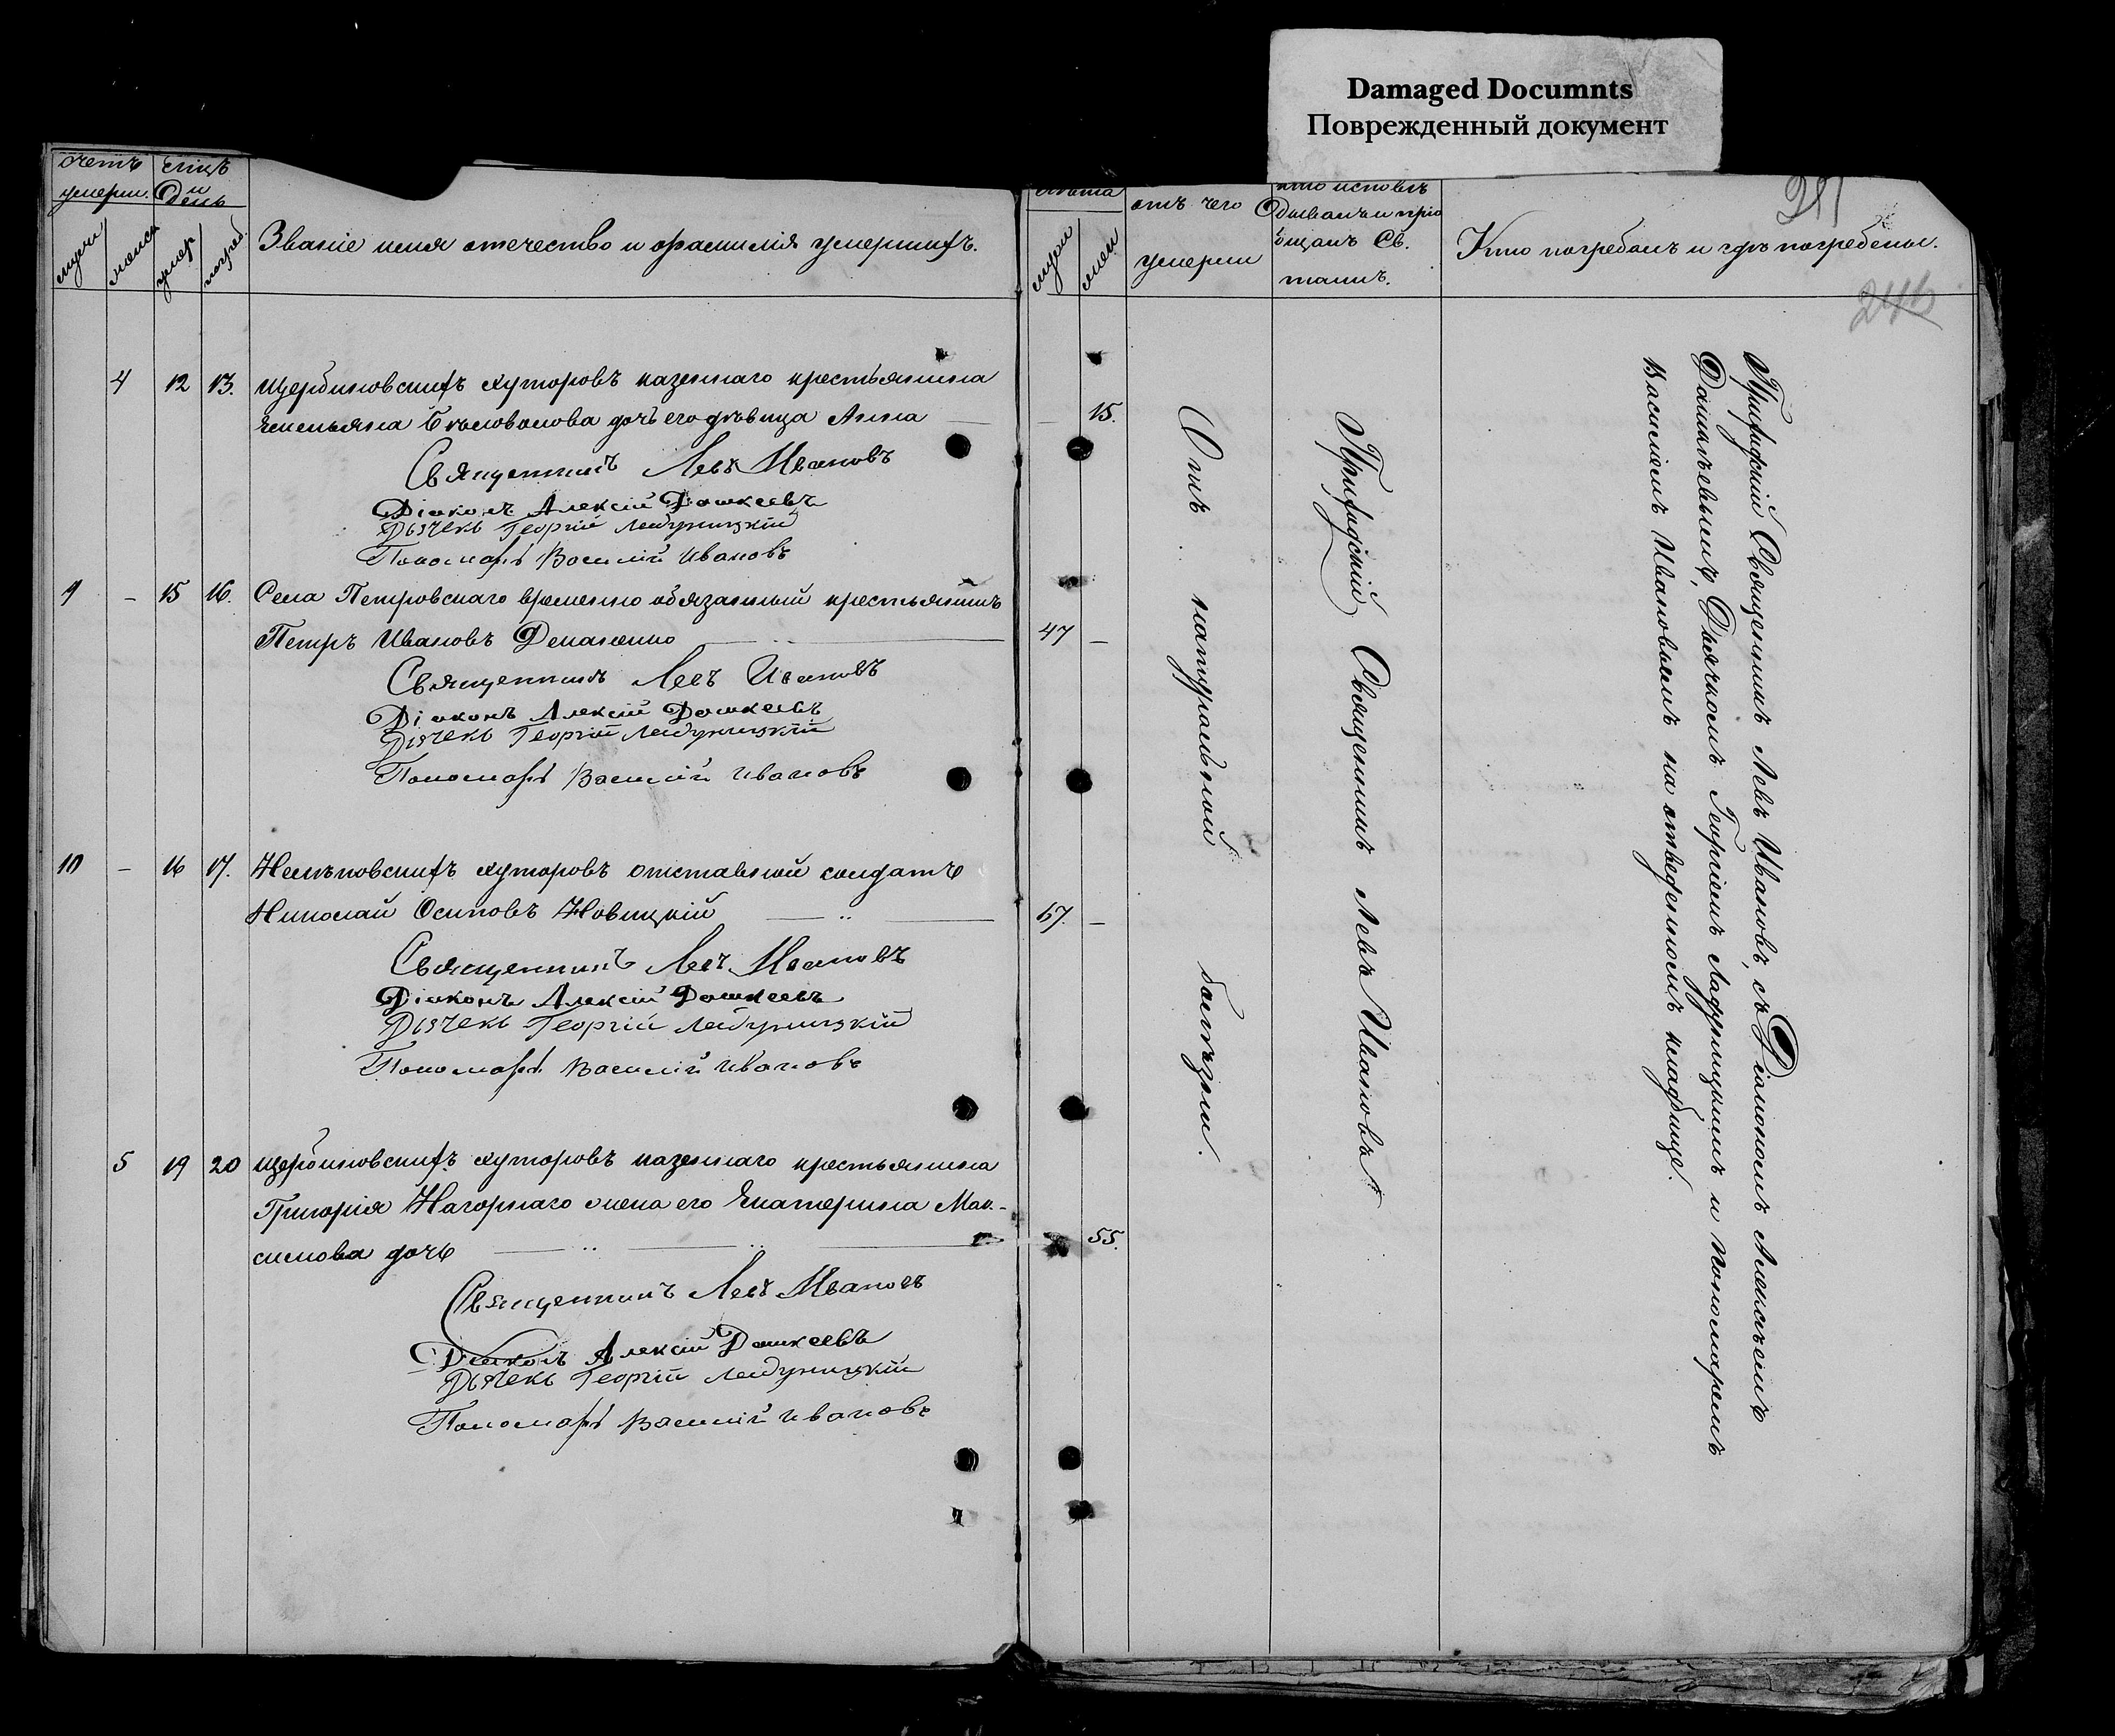 Damaged Documnts
Поврежденный документ
счетъ
умерш.
и
день
Званіе имя отечество и фамилія умершихъ.
муж
женск
умер.
погреб.
4 12 13. Щербиновскихъ хуторовъ казеннаго крестьянина
Емельяна Бѣловолова дочь его дѣвица Анна
Священникъ Левъ Ивановъ
Діаконъ Алексій Дашкеевъ
Дьячекъ Георгій
Пономарь Василій Ивановъ
9 – 15 16. Села Петровскаго временно обязанный крестьянинъ
Петръ Ивановъ
Священникъ Левъ Ивановъ
Діаконъ Алексій Дашкеевъ
Дьячекъ Георгій
Пономарь Василій Ивановъ
10 – 16 17. хуторовъ отставной солдатъ
Николай Осиповъ Новицкій
Священникъ Левъ Ивановъ
Діаконъ Алексій Дашкеевъ
Дьячекъ Георгій
Пономарь Василій Ивановъ
5 19 20 Щербиновскихъ хуторовъ казеннаго крестьянина
Григорія Нагорнаго жена его Екатерина Мак-
симова дочь
Священникъ Левъ Ивановъ
Діаконъ Алексій Дашкеевъ
Дьячекъ Георгій
Пономарь Василій Ивановъ
лѣта
муж
жен
отъ чего
умерли
кто исповѣ
дывалъ и прі
общалъ Св.
таинъ.
Кто погребалъ и гдѣ погребены.
246
– 15.
47 –
67. –
55.
Отъ натуральной болѣзни.
Приходскій Священникъ Левъ Ивановъ
Приходскій Священникъ Левъ Ивановъ, съ Діакономъ Алексѣемъ
Дашкѣевымъ, Дьячкомъ Георгіемъ и пономаремъ
Василіемъ Ивановымъ на отведенномъ кладбище.